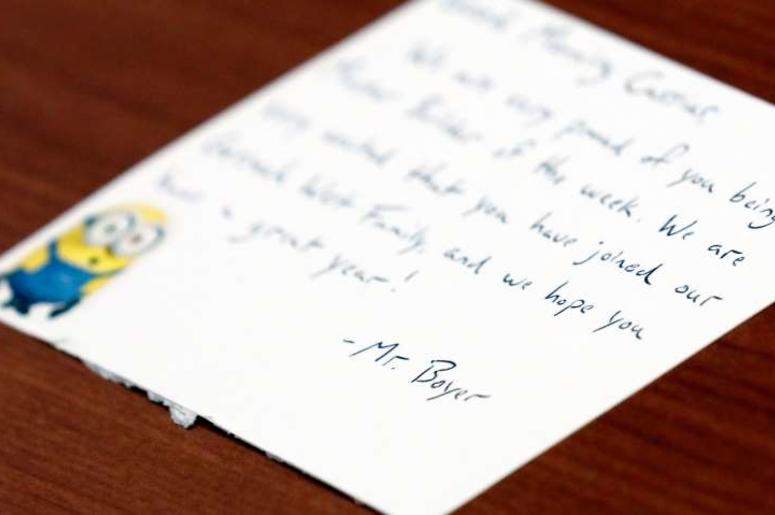 Good Morning
We are very proud of you being
of the week. We are
very excited that you have joined our
West Family, and we hope you
have a great year!
-Mr. Boyer